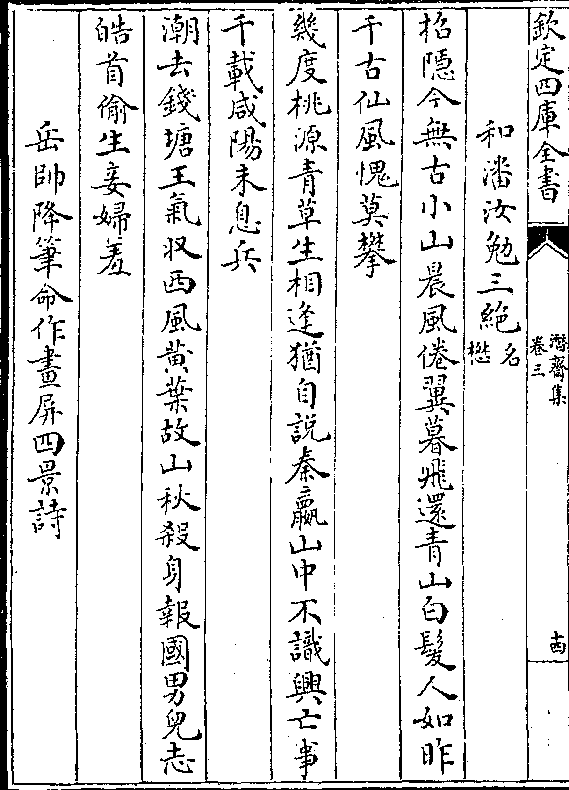 欽定四庫全書
潛齋集
卷三
十四
和潘汝勉三絶名
懋
招隱今無古小山晨風倦翼暮飛還青山白髮人如昨
千古仙風愧莫攀
幾度桃源青草生相逢猶自說秦嬴山中不識興亡事
千載咸陽未息兵
潮去錢塘王氣收西風黄葉故山秋殺身報國男兒志
皓首偷生妾婦羞
岳帥降筆命作畫屏四景詩